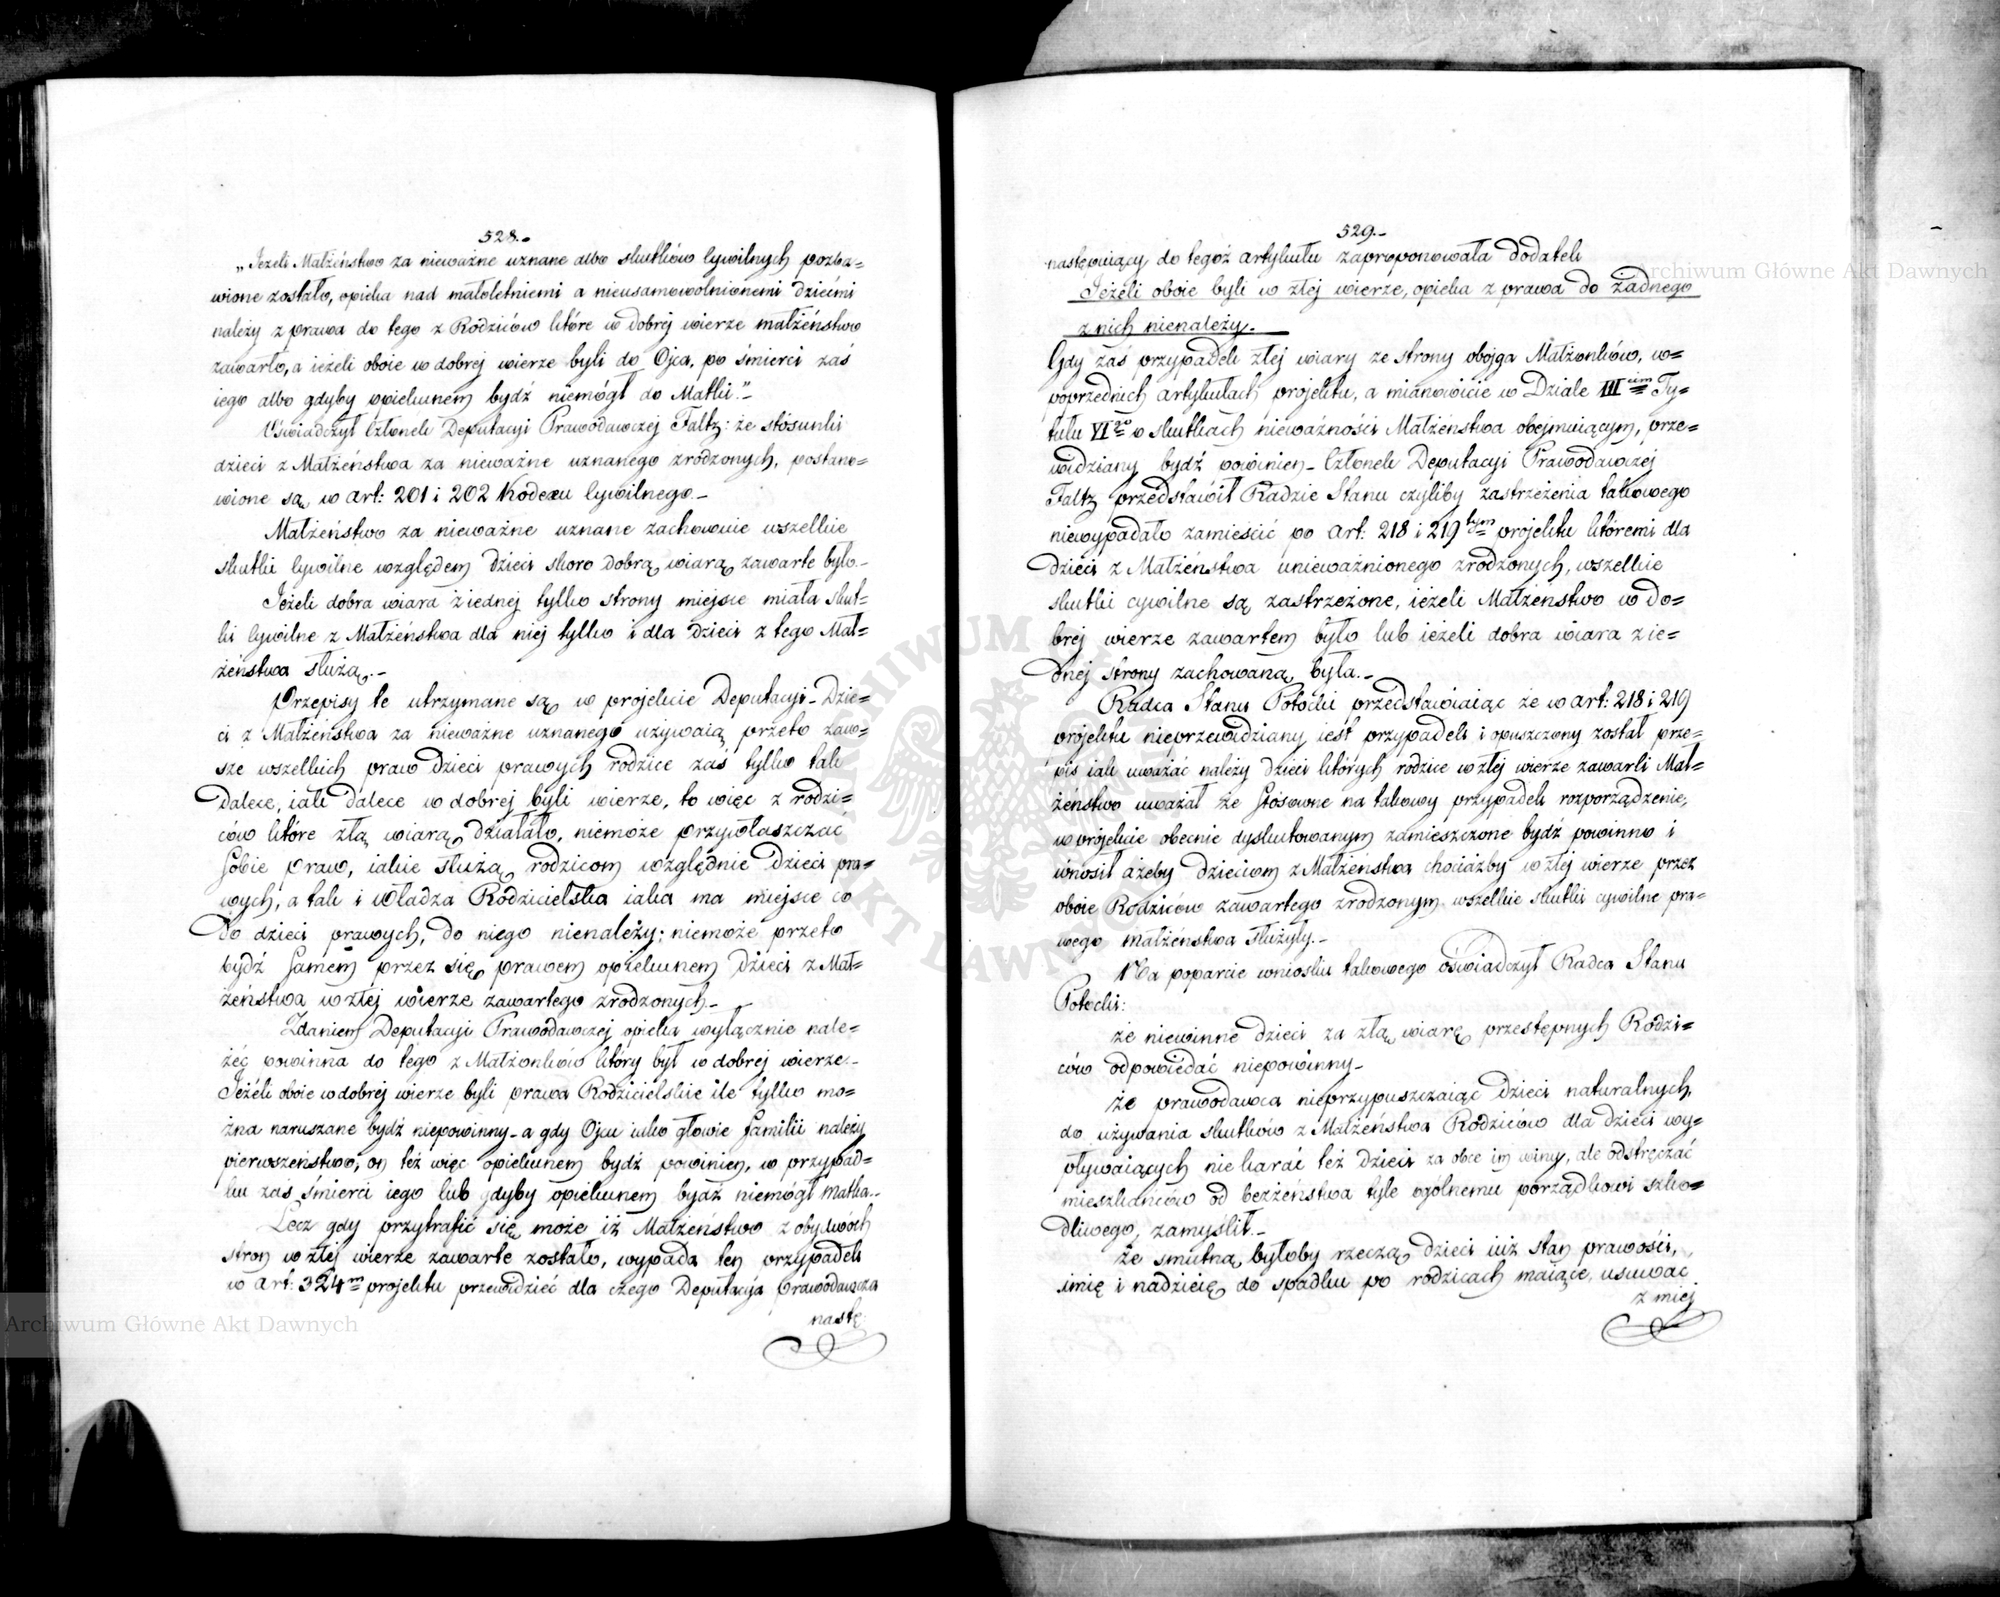 528.-
„Jeżeli Małżeństwo za nieważne uznane albo skutków cywilnych pozba=
wione zostało, opieka nad małoletniemi a nieusamowolnionemi dziećmi
należy z prawa do tego z Rodziców które w dobrej wierze małżeństwo
zawarło, a ieżeli oboie w dobrej wierze byli do Ojca, po śmierci zaś
iego albo gdyby opiekunem bydź niemógł do Matki.”-
Oświadczył Członek Deputacyi Prawodawczej Faltz: że stósunki
dzieci z Małżeństwa za nieważne uznanego zrodzonych, postano=
wione są, w art: 201 i 202 Kodexu Cywilnego-
Małżeństwo za nieważne uznane zachowuie wszelkie
skutki Cywilne względem Dzieci skoro dobrą wiarą zawarte było.-
Jeżeli dobra wiara z iednej tylko strony miejsce miała skut=
ki Cywilne z Małżeństwa dla niej tylko i dla Dzieci z tego Mał=
żeństwa służą.-
Przepisy te utrzymane są w projekcie Deputacyi- Dzie=
ci z Małżeństwa za nieważne uznanego używaią przeto zaw=
sze wszelkich praw Dzieci prawych rodzice zaś tylko tak
Dalece, iak Dalece w dobrej byli wierze, to więc z rodzi=
ców które złą wiarą Działało, niemoże przywłaszczać
Sobie praw, iakie służą rodzicom względnie Dzieci pra=
wych, a tak i władza Rodzicielska iaka ma miejsce co
Do dzieci prawych, do niego nienależy; niemoże przeto
bydź Samem przez się prawem opiekunem Dzieci z Mał=
żeństwa w złej wierze zawartego zrodzonych-
Zdaniem Deputacyi Prawodawczej opieka wyłącznie nale=
żeć powinna do tego z Małżonków który był w dobrej wierze.-
Jeżeli oboie w dobrej wierze byli prawa Rodzicielskie ile tylko mo=
żna naruszane bydź niepowinny- a gdy Ojcu iako głowie familii należy
pierwszeństwo; on też więc opiekunem bydź powinien, w przypad=
ku zaś śmierci iego lub gdyby opiekunem bydź niemógł Matka.-
Lecz gdy przytrafić się może iż Małżeństwo z obydwóch
stron w złej wierze zawarte zostało, wypada ten przypadek
w Art: 324m projektu przewidzieć dla czego Deputacyia Prawodawcza
nastę:
529.-
następuiący do tegoż artykułu zaproponowała dodatek
Jeżeli oboie byli w złej wierze, opieka z prawa do żadnego
z nich nienależy.-
Gdy zaś przypadek złej wiary ze strony obojga Małżonków, w=
poprzednich artykułach projektu, a mianowicie w Dziale IIIcim Ty=
tułu VIgo w skutkach nieważności Małżeństwa obejmuiącym, prze=
widziany bydź powinien- Członek Deputacyi Prawodawczej
Faltz przedstawił Radzie Stanu czyliby zastrzeżenia takowego
niewypadało zamieścić po art: 218 i 219tym projektu któremi dla
Dzieci z Małżeństwa unieważnionego zrodzonych, wszelkie
skutki cywilne są zastrzeżone, ieżeli Małżeństwo w do=
brej wierze zawartem było lub ieżeli dobra wiara z ie=
dnej strony zachowaną była.-
Radca Stanu Potocki przedstawiaiąc że w art: 218 i 219
projektu nieprzewidziany iest przypadek i opuszczony został prze=
pis iak uważać należy Dzieci których rodzice w złej wierze zawarli Mał=
żeństwo uważał że Stósowne na takowy przypadek rozporządzenie,
w projekcie obecnie dyskutowanym zamieszczone bydź powinno i
wnosił ażeby Dzieciom z Małżeństwa chociażby w złej wierze przez
oboie Rodziców zawartego zrodzonym wszelkie skutki cywilne pra=
wego małżeństwa służyły.-
Na poparcie wniosku takowego oświadczył Radca Stanu
Potocki:
że niewinne dzieci za złą wiarę przestępnych Rodzi=
ców odpowiedać niepowinny-
że prawodawca nieprzypuszczaiąc Dzieci naturalnych,
do używania skutków z Małżeństwa Rodziców dla dzieci wy=
pływaiących nie karać też Dzieci za obce im winy, ale odstręczać
mieszkańców od bezżeństwa tyle ogólnemu porządkowi szko=
dliwego, zamyślił-
że smutną byłoby rzeczą Dzieci iuż stan prawości,
imię i nadzieię do spadku po rodzicach maiące, usuwać
z miej
Archiwum Główne Akt Dawnych
Archiwum Główne Akt Dawnych
ARCHIWUM GŁÓWNE AKT DAWNYCH